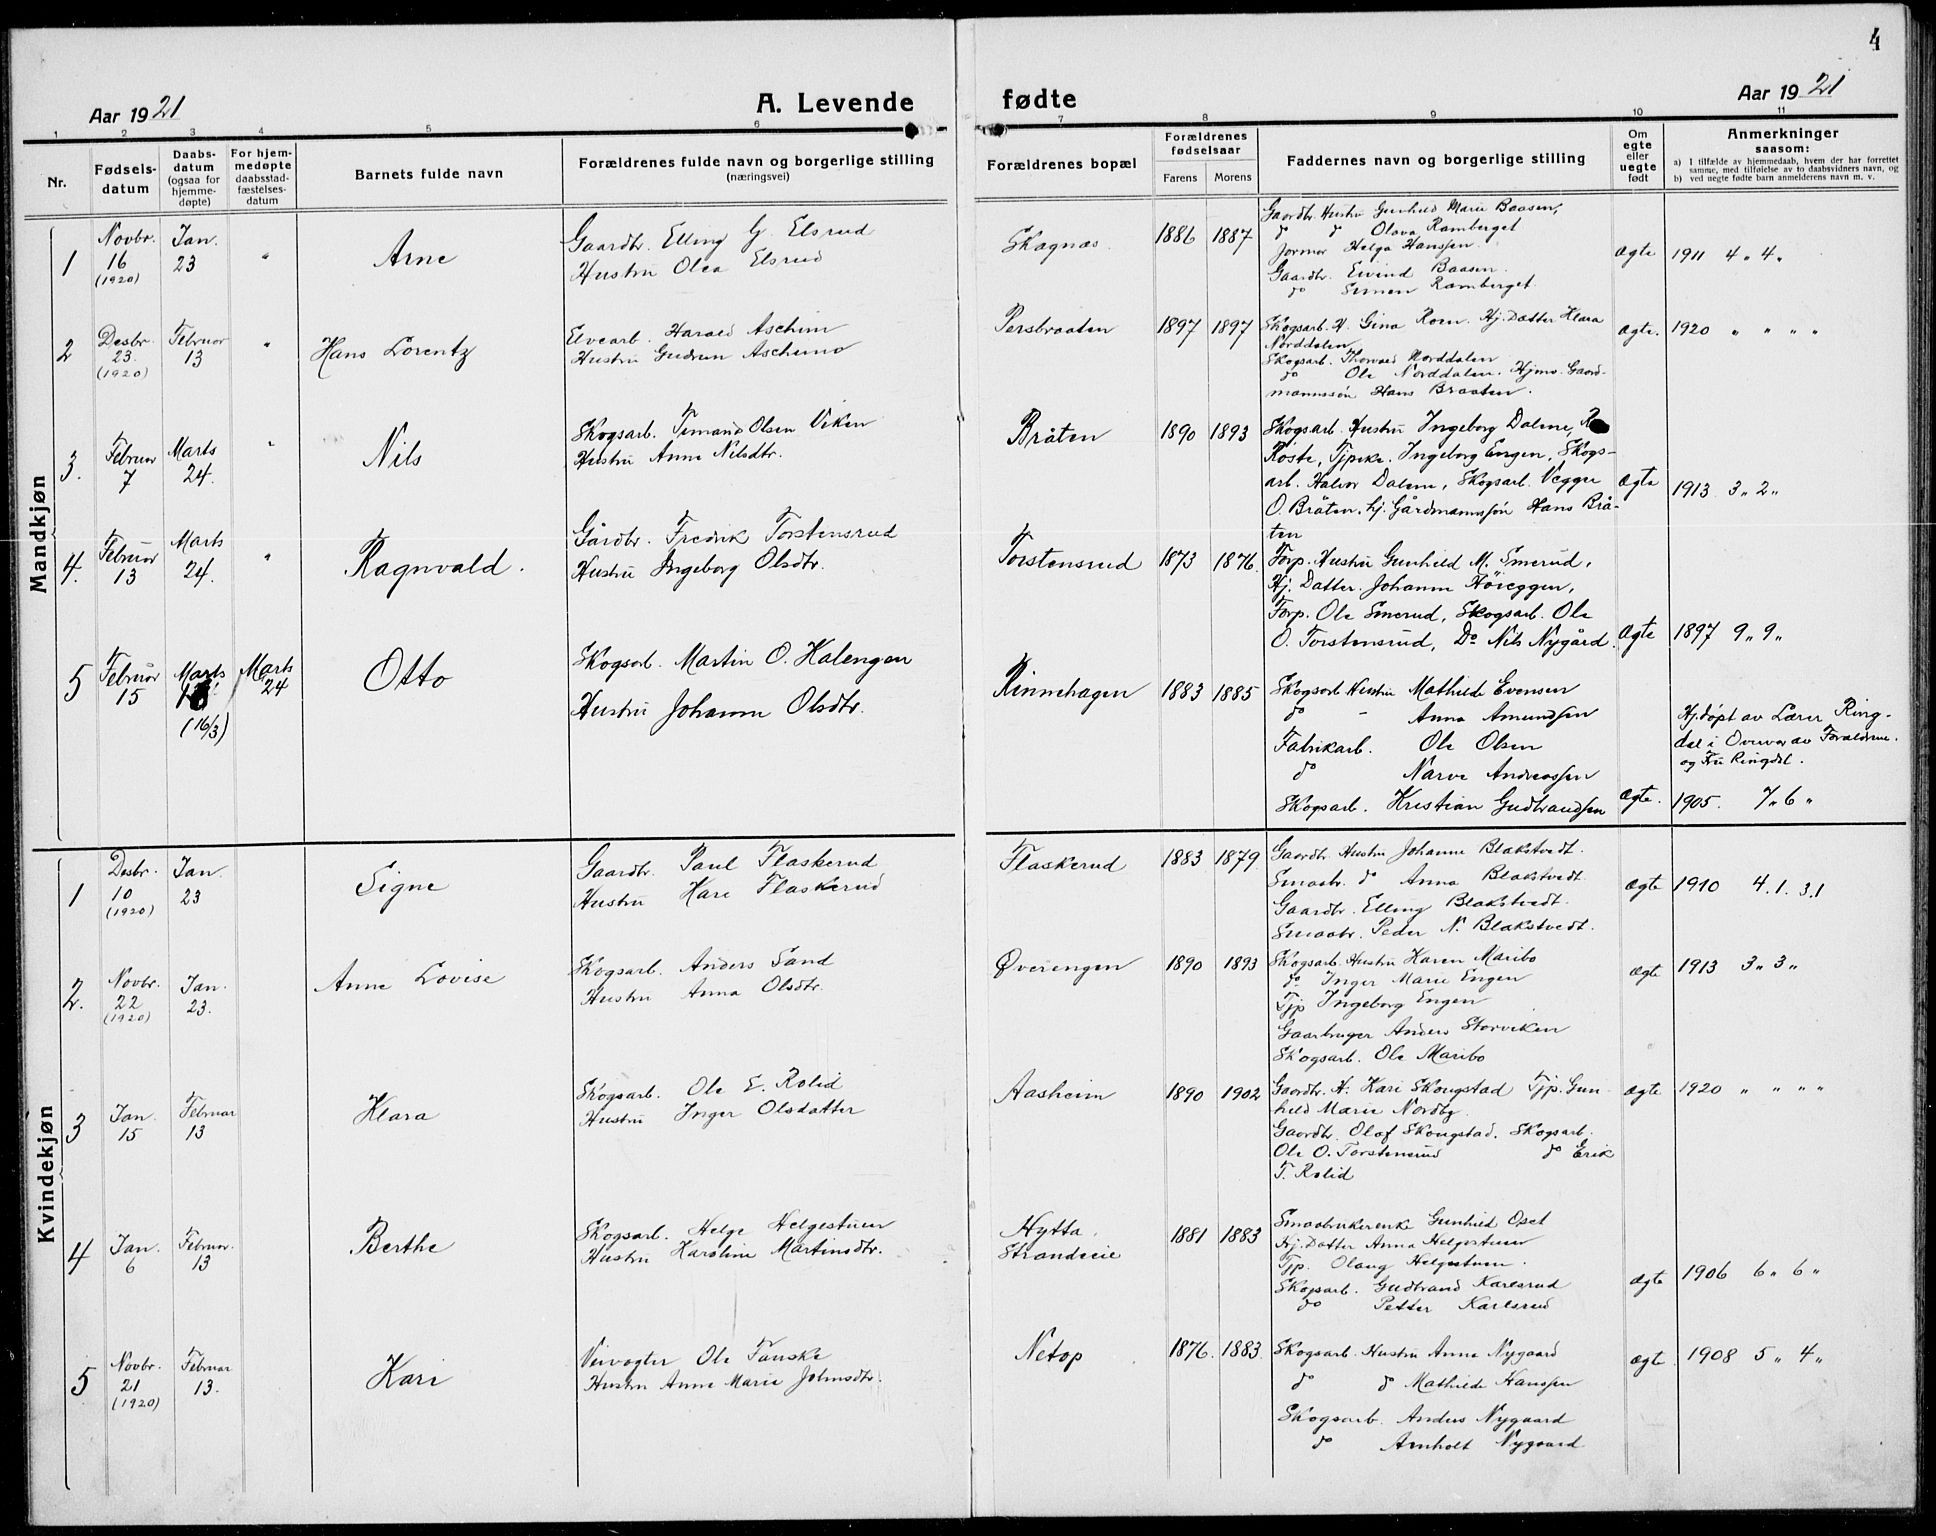 4
Aar 1921
A. Levende
fødte
Aar 1921
1 2 3 4 5 6 7 8 9 10 11
Nr.
Fødsels-
datum
Daabs-
datum
(ogsaa for
hjemme-
døpte)
For hjem-
medøpte
daabsstad-
fæstelses-
datum
Barnets fulde navn
Forældrenes fulde navn og borgerlige stilling
(næringsvei)
Forældrenes bopæl
Forældrenes
fødselsaar
Farens Morens
Faddernes navn og borgerlige stilling
Om
egte
eller
uegte
født
Anmerkninger
saasom:
a) I tilfælde av hjemmedaab, hvem der har forrettet
samme, med tilføielse av to daabsvidners navn, og
b) ved uegte fødte barn anmelderens navn m. v.
Mandkjøn
1
Novbr.
16
(1920)
Jan.
23
"
Arne
Gaardbr. Elling G. Elsrud
Hustru Olea Elsrud
Skagnæs
1886 1887
Gaardbr. Hustru Gunhild Marie Baasen,
do do Olava Ramberget
Jormor Helga Hanssen.
Gaardbr. Eivind Baasen.
do Simen Ramberget
ægte
1911 4 " 4 "
2
Desbr.
23.
(1920)
Februar
13
"
Hans Lorentz
Elvearb. Harald Aschim
Hustru Gudrun Aschim
Persbraaten
1897 1897
Skogsarb. H. Gina Roen. Hj. Datter Klara
Norddalen
Skogsarb. Thorvald Norddalen
do Ole Norddalen. Hjmv. Gaard-
mannssøn Hans Braaten.
ægte.
1920 " " " "
3.
Februar
7
Marts
24.
"
Nils
Skogsarb. Olsen Viken
Hustru Anne Nilsdtr.
Bråten
1890 1893
Skogsarb. Hustru Ingeborg Dalene,
Roste, Tjpike. Ingeborg Engen, Skogs-
arb. Halvor Dalene, Skogsarb. Vegger
O. Bråten, hj. Gårdmannssøn Hans Brå-
ten
ægte
1913 3 " 2 "
4.
Februar
13
Marts
24.
"
Ragnvald.
Gårdbr. Fredrik Torstensrud
Hustru Ingeborg Olsdtr.
Torstensrud
1873 1876.
Forp. Hustru Gunhild M. Smerud,
Hj. Datter. Johanne Høieggen,
Forp. Ole Smerud, Skogsarb. Ole
O. Torstensrud, Do Nils Nygård.
ægte
1897 9 " 9 "
5
Februar
15
Marts
(16/3)
Marts
24
Otto
Skogsarb. Martin O. Halengen
Hustru Johanne Olsdtr.
Rinnehagen
1883 1885
Skogsarb Hustru Mathilde Evensen
do - Anna Amundsen
Fabrikarb. Ole Olsen
do Narve Andreassen
Skogsarb. Kristian Gudbrandsen
ægte.
Hj.døpt av Lærer Ring-
dal i Overvær av Forældrene.
og Fru Ringdal.
1905. 7 " 6 "
Kvindekjøn
1
Desbr.
10
(1920)
Jan.
23
Signe
Gaardbr. Paul Flaskerud
Hustru Kari Flaskerud
Flaskerud
1883 1879.
Gaardbr. Hustru Johanne Blakstvedt.
Smaabr. do Anna Blakstvedt
Gaardbr. Elling Blakstvedt.
Smaabr. Peder N. Blakstvedt.
ægte
1910 4.1. 3.1
2.
Novbr.
22
(1920)
Jan.
23.
Anne Lovise
Skogsarb. Anders Sand
Hustru Anna Olsdtr.
Øverengen
1890 1893
Skogsarb. Hustru Karen Maribo
do Inger Marie Engen
Tjp Ingeborg Engen
Gaarbruger Anders Storviken
Skogsarb. Ole Maribo
ægte
1913 3 " 3 "
3
Jan.
15
Februar
13
Klara
Skogsarb. Ole E. Rolid
Hustru Inger Olsdatter
Aasheim
1890 1902
Gaardbr. H. Kari Skougstad Tjp. Gun-
hild Marie Nordby
Gaardbr. Olof Skougstad. Skogsarb.
Ole O. Torstensrud do Erik
T. Rolid
ægte
1920 " " " "
4
Jan.
6
Februar.
13
Berthe
Skogsarb. Helge Helgestuen
Hustru Karoline Martinsdtr.
Hytta,
Strandeie
1881 1883
Smaabrukerenke Gunhild Oset
Hj. Datter Anna Helgestuen
Tjp. Olaug Helgestuen.
Skogsarb. Gudbrand Karlsrud
do Petter Karlsrud
ægte
1906 6 " 6 "
5
Novbr.
21
(1920)
Februar
13.
Kari
Veivogter Ole Fauske
Hustru Anne Marie Johnsdtr.
Netop
1876. 1883
Skogsarb. Hustru Anna Nygaard
do do Mathilde Hanssen
Skogsarb. Anders Nygaard
do Arnholt Nygaard
ægte
1908 5 " 4 "